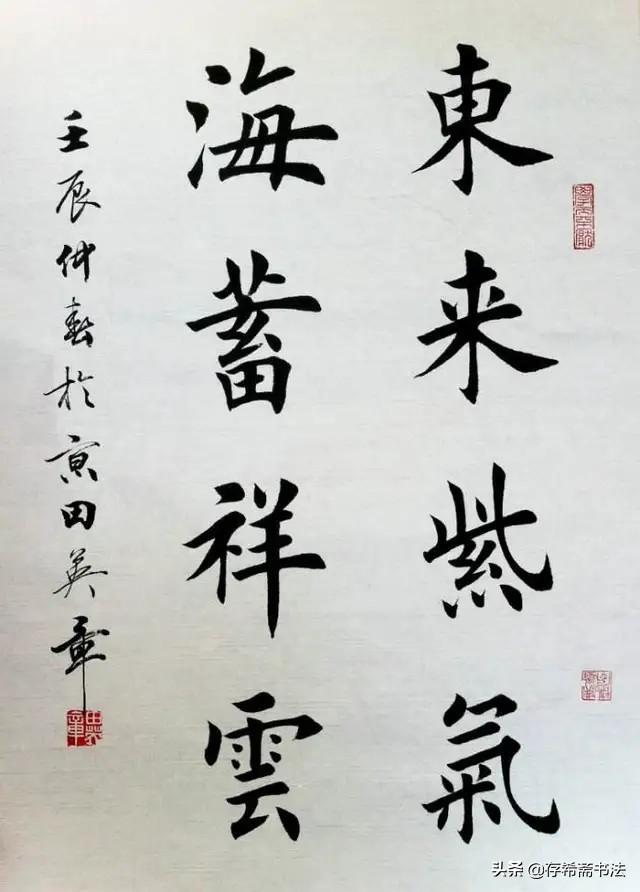 東来紫氣
海蓄祥雲
壬辰仲春於京田英章
头条 @存希斋书法